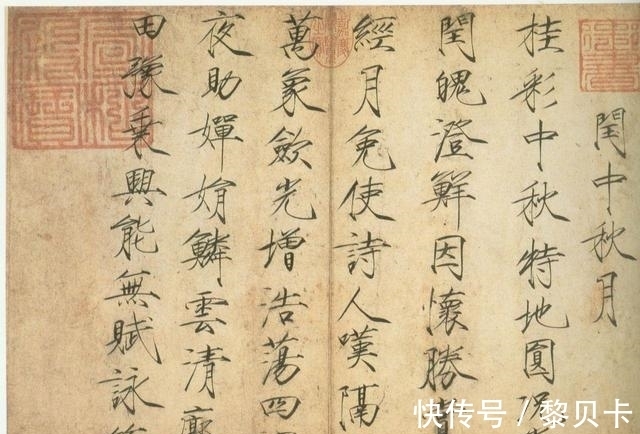 閏中秋月
桂彩中秋特地圓
閏魄澄鮮因懷勝
經月免使詩人嘆隔
萬象斂光增浩蕩四
夜助嬋娟鱗雲清
田豫乘興能無賦詠
快传号 / 黎贝卡